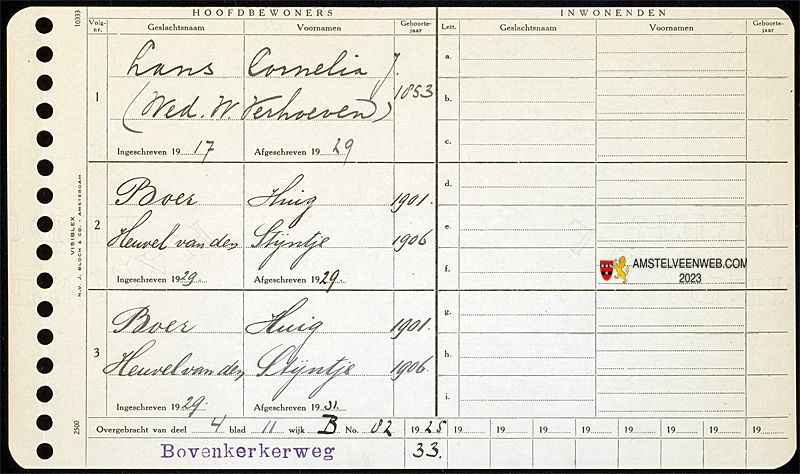 HOOFDBEWONERS
INWONENDEN
Volg-nr.
Geslachtsnaam
Voornamen
Geboorte-jaar
Lett.
Geslachtsnaam
Voornamen
Geboorte-jaar
10333
1
Lans Cornelia J.
1853
(Wed. W. Verhoeven)
Ingeschreven 19 17 Afgeschreven 19 29
2
Boer Huig 1901.
Heuvel van den Stijntje 1906
Ingeschreven 19 29. Afgeschreven 19 29.
3
Boer Huig 1901.
Heuvel van den Stijntje 1906.
Ingeschreven 19 29. Afgeschreven 19 31.
a.
b.
c.
d.
e.
f.
g.
h.
i.
AMSTELVEENWEB.COM
2023
VISIBLEX
N.V. J. BLOCH & CO. - AMSTERDAM
2500
Overgebracht van deel 4 blad 11 wijk B No. 82 19 25 19 19 19 19 19 19 19 19
Bovenkerkerweg 33.